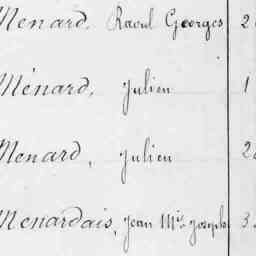 Menard. Raoul Georges 2
Ménard, Julien 1
Menard, Julien 2
Menardais, Jean Mie Joseph 3